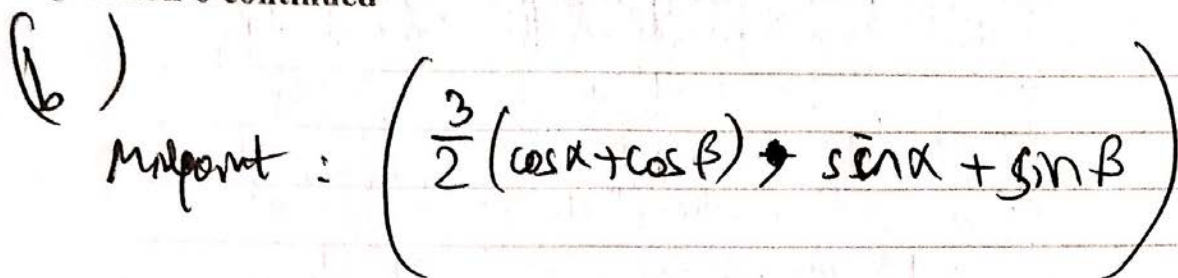 continued
(b)
Midpoint : ( 3/2 (cosα+cosβ) , sinα + sinβ )